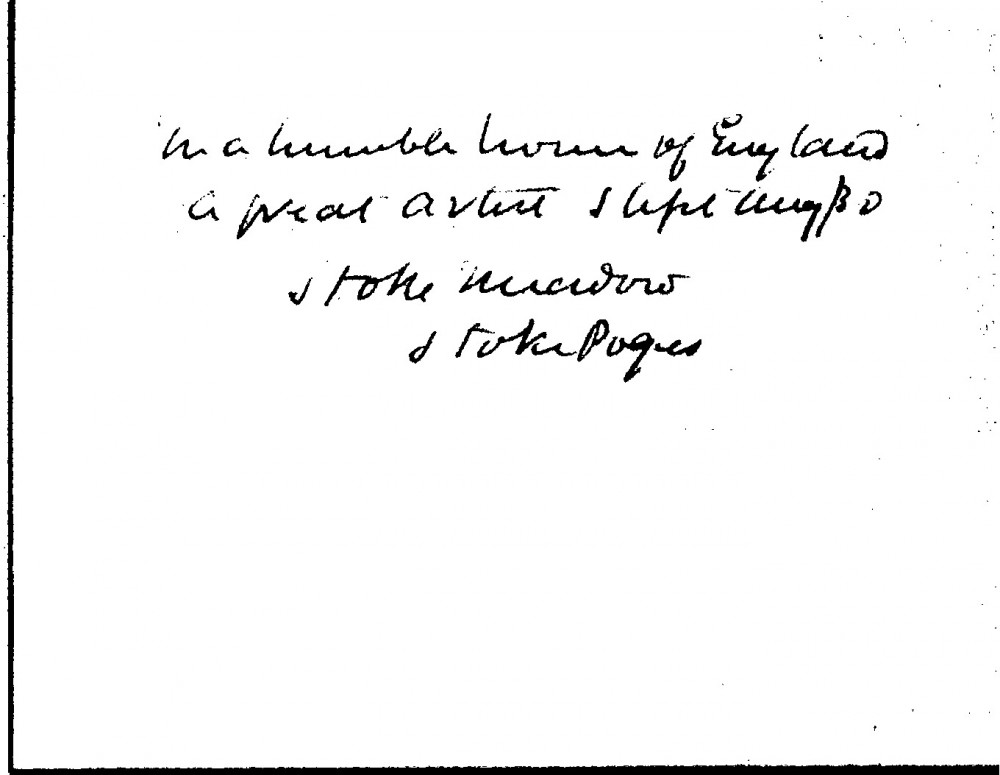 In a humble home of England
a great artist slept Aug/30
Stoke Meadow
Stoke Poges